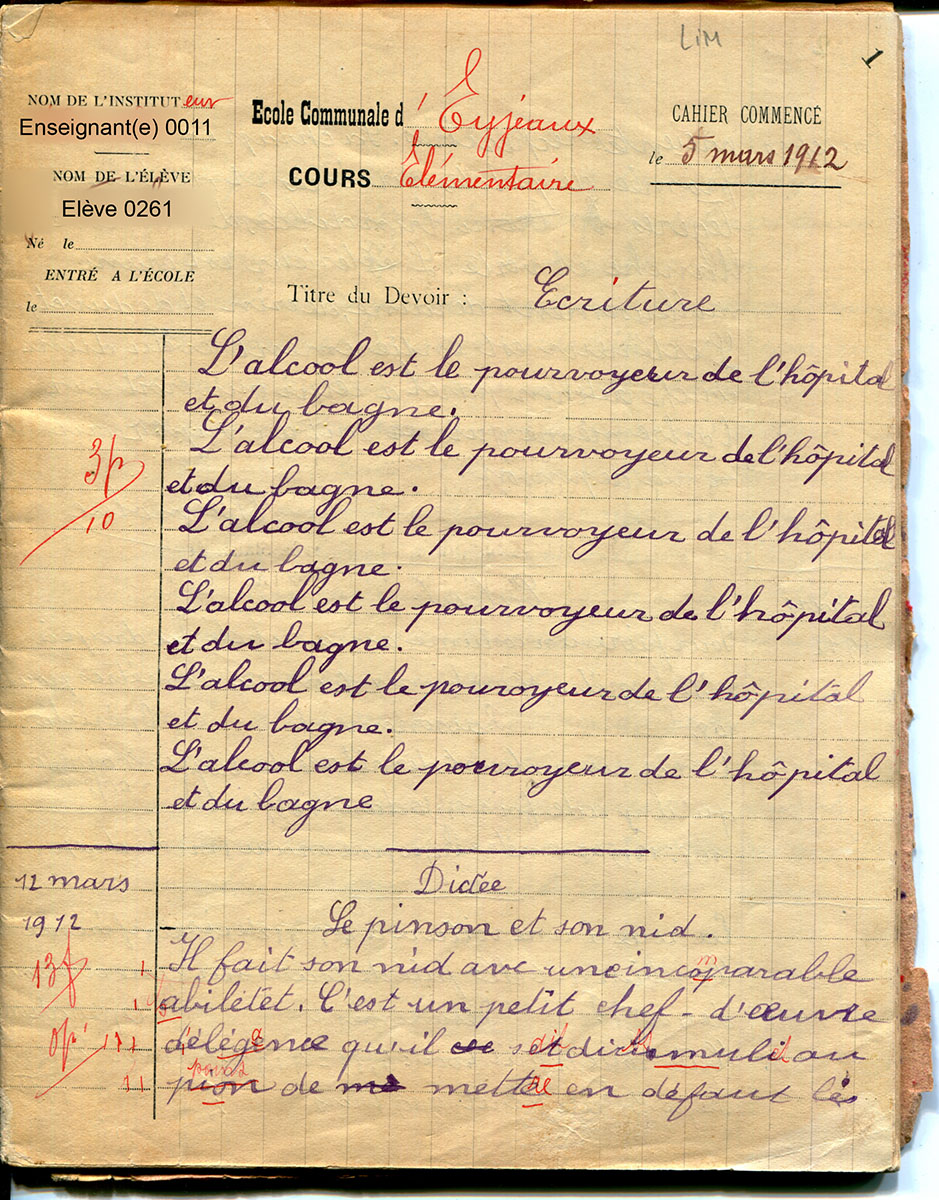 LIM
1
NOM DE L'INSTITUTeur
Enseignant(e) 0011
NOM DE L'ÉLÈVE
Elève 0261
Né le
ENTRÉ A L'ÉCOLE
le
Ecole Communale d'Eyjeaux
COURS Elémentaire
CAHIER COMMENCÉ
le 5 mars 1912
Titre du Devoir : Ecriture
L'alcool est le pourvoyeur de l'hôpital
et du bagne.
L'alcool est le pourvoyeur de l'hôpital
et du bagne.
3p
10
L'alcool est le pourvoyeur de l'hôpital
et du bagne.
L'alcool est le pourvoyeur de l'hôpital
et du bagne.
L'alcool est le pouroyeur de l'hôpital
et du bagne.
L'alcool est le pourvoyeur de l'hôpital
et du bagne
12 mars
1912
Dictée
Le pinson et son nid.
13f
Il fait son nid avc un incomparable
abilétet. C'est un petit chef-d'œuvre
0p
d'élégence qu'il
de mettre en défaut les